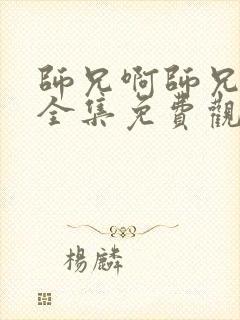 師兄啊師兄
全集免費觀
楊麟